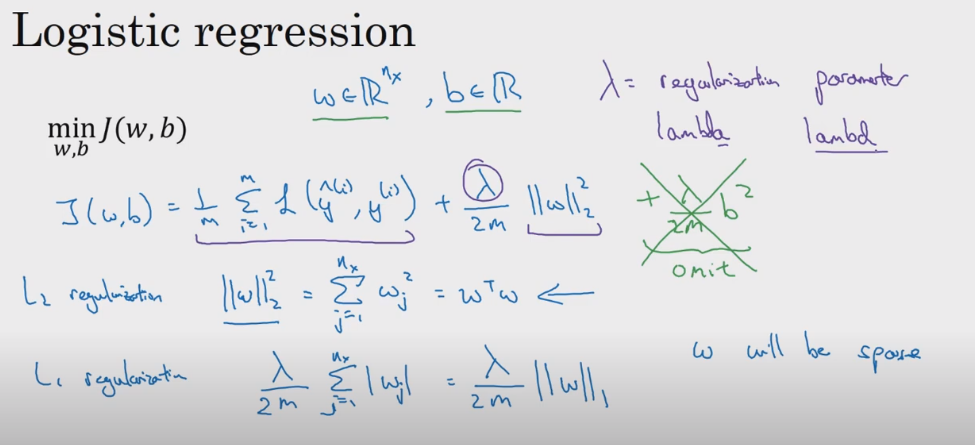 Logistic regression
w ∈ ℝ^{n_x}, b ∈ ℝ
λ = regularization parameter
lambda lambd
min_{w,b} J(w, b)
J(w,b) = \frac{1}{m} \sum_{i=1}^{m} ℒ(ŷ^{(i)}, y^{(i)}) + \frac{λ}{2m} ||w||_2^2 + \frac{λ}{2m} b^2
omit
L_2 regularization ||w||_2^2 = \sum_{j=1}^{n_x} w_j^2 = w^T w ←
L_1 regularization \frac{λ}{2m} \sum_{j=1}^{n_x} |w_j| = \frac{λ}{2m} ||w||_1 w will be sparse